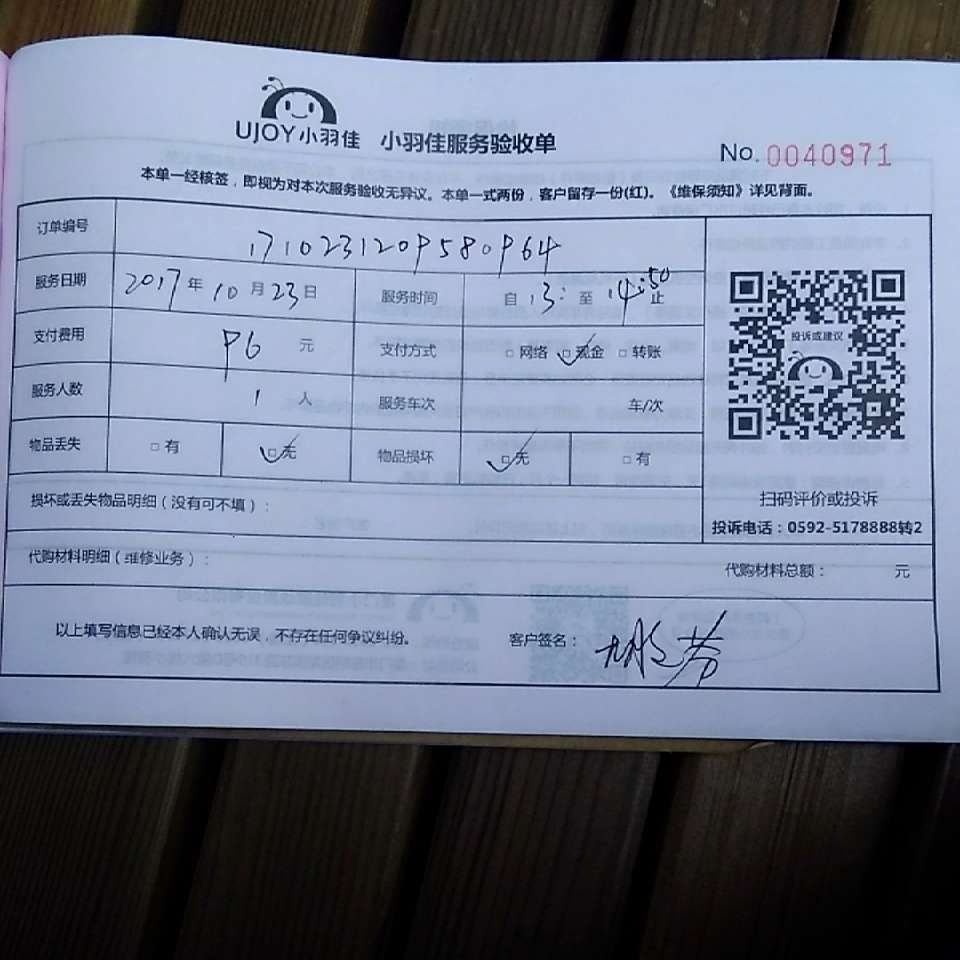 UJOY小羽佳 小羽佳服务验收单
No. 0040971
本单一经核签，即视为对本次服务验收无异议。本单一式两份，客户留存一份(红)。《维保须知》详见背面。
订单编号 1710231209580964
服务日期 2017年10月23日 服务时间 自13:至14:50止
支付费用 96元 支付方式 □网络 □现金 □转账
服务人数 1人 服务车次 车/次
物品丢失 □有 □无 物品损坏 □无 □有
投诉或建议
扫码评价或投诉
投诉电话：0592-5178888转2
损坏或丢失物品明细（没有可不填）：
代购材料明细（维修业务）： 代购材料总额： 元
以上填写信息已经本人确认无误，不存在任何争议纠纷。 客户签名：